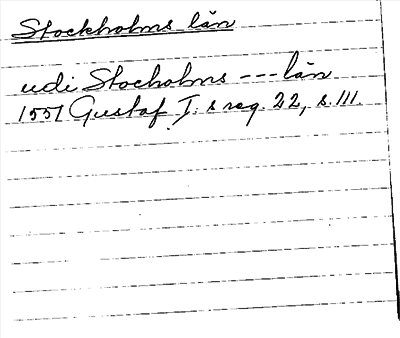 Stockholms län
udi Stocholms --- län
1551 Gustaf I:s reg. 22, s. 111.